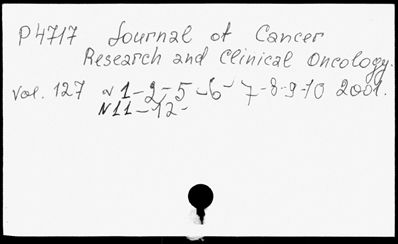 P4717 Journal of Cancer
Research and Clinical Oncology.
Vol. 127 N 1-2-5-6-7-8-9-10 2001.
N11-12-